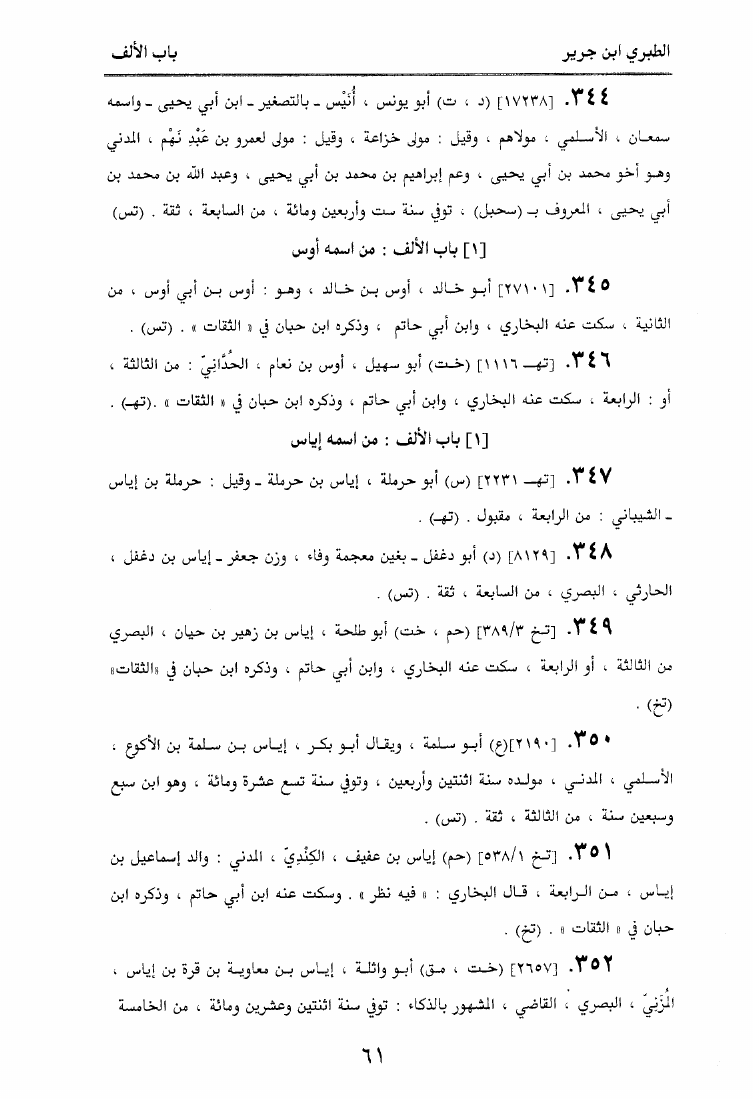 الطبري ابن جرير
باب الألف
٣٤٤. [١٧٢٣٨] (د ، ت) أبو يونس ، أُنَيْس ـ بالتصغير ـ ابن أبي يحيى ـ واسمه
سمعـان ، الأسـلمي ، مولاهم ، وقيل : مولى خزاعة ، وقيل : مولى لعمرو بن عَبْدِ نَهْم ، المدني
وهـو أخو محمد بن أبي يحيى ، وعم إبراهيم بن محمد بن أبي يحيى ، وعبد الله بن محمد بن
أبي يحيى ، المعروف بـ (سحبل) ، توفي سنة ست وأربعين ومائة ، من السابعة ، ثقة . (تس)
[١] باب الألف : من اسمه أوس
٣٤٥. [٢٧١٠١] أبـو خـالد ، أوس بـن خـالد ، وهـو : أوس بـن أبي أوس ، من
الثانية ، سكت عنه البخاري ، وابن أبي حاتم ، وذكره ابن حبان في « الثقات » . (تس) .
٣٤٦. [تهـ ١١١٦] (خـت) أبو سهيل ، أوس بن نعام ، الحُدَّانِيّ : من الثالثة ،
أو : الرابعة ، سكت عنه البخاري ، وابن أبي حاتم ، وذكره ابن حبان في « الثقات » .(تهـ) .
[١] باب الألف : من اسمه إياس
٣٤٧. [تهـ ٢٢٣١] (س) أبو حرملة ، إياس بن حرملة ـ وقيل : حرملة بن إياس
ـ الشيباني : من الرابعة ، مقبول . (تهـ) .
٣٤٨. [٨١٢٩] (د) أبو دغفل ـ بغين معجمة وفاء ، وزن جعفر ـ إياس بن دغفل ،
الحارثي ، البصري ، من السابعة ، ثقة . (تس) .
٣٤٩. [تـخ ٣٨٩/٣] (حم ، خت) أبو طلحة ، إياس بن زهير بن حيان ، البصري
من الثالثة ، أو الرابعة ، سكت عنه البخاري ، وابن أبي حاتم ، وذكره ابن حبان في «الثقات»
(تخ) .
٣٥٠. [٢١٩٠](ع) أبـو سلمة ، ويقـال أبـو بكـر ، إيـاس بـن سـلمة بن الأكوع ،
الأسـلمي ، المدنـي ، مولـده سنة اثنتين وأربعين ، وتوفي سنة تسع عشرة ومائة ، وهو ابن سبع
وسبعين سنة ، من الثالثة ، ثقة . (تس) .
٣٥١. [تـخ ٥٣٨/١] (حم) إياس بن عفيف ، الكِنْدِيّ ، المدني : والد إسماعيل بن
إيـاس ، مـن الـرابعة ، قـال البخاري : « فيه نظر » . وسكت عنه ابن أبي حاتم ، وذكره ابن
حبان في « الثقات » . (تخ) .
٣٥٢. [٢٦٥٧] (خـت ، مـق) أبـو واثلـة ، إيـاس بـن معاويـة بن قرة بن إياس ،
المُزَنِيّ ، البصري ، القاضي ، المشهور بالذكاء : توفي سنة اثنتين وعشرين ومائة ، من الخامسة
٦١